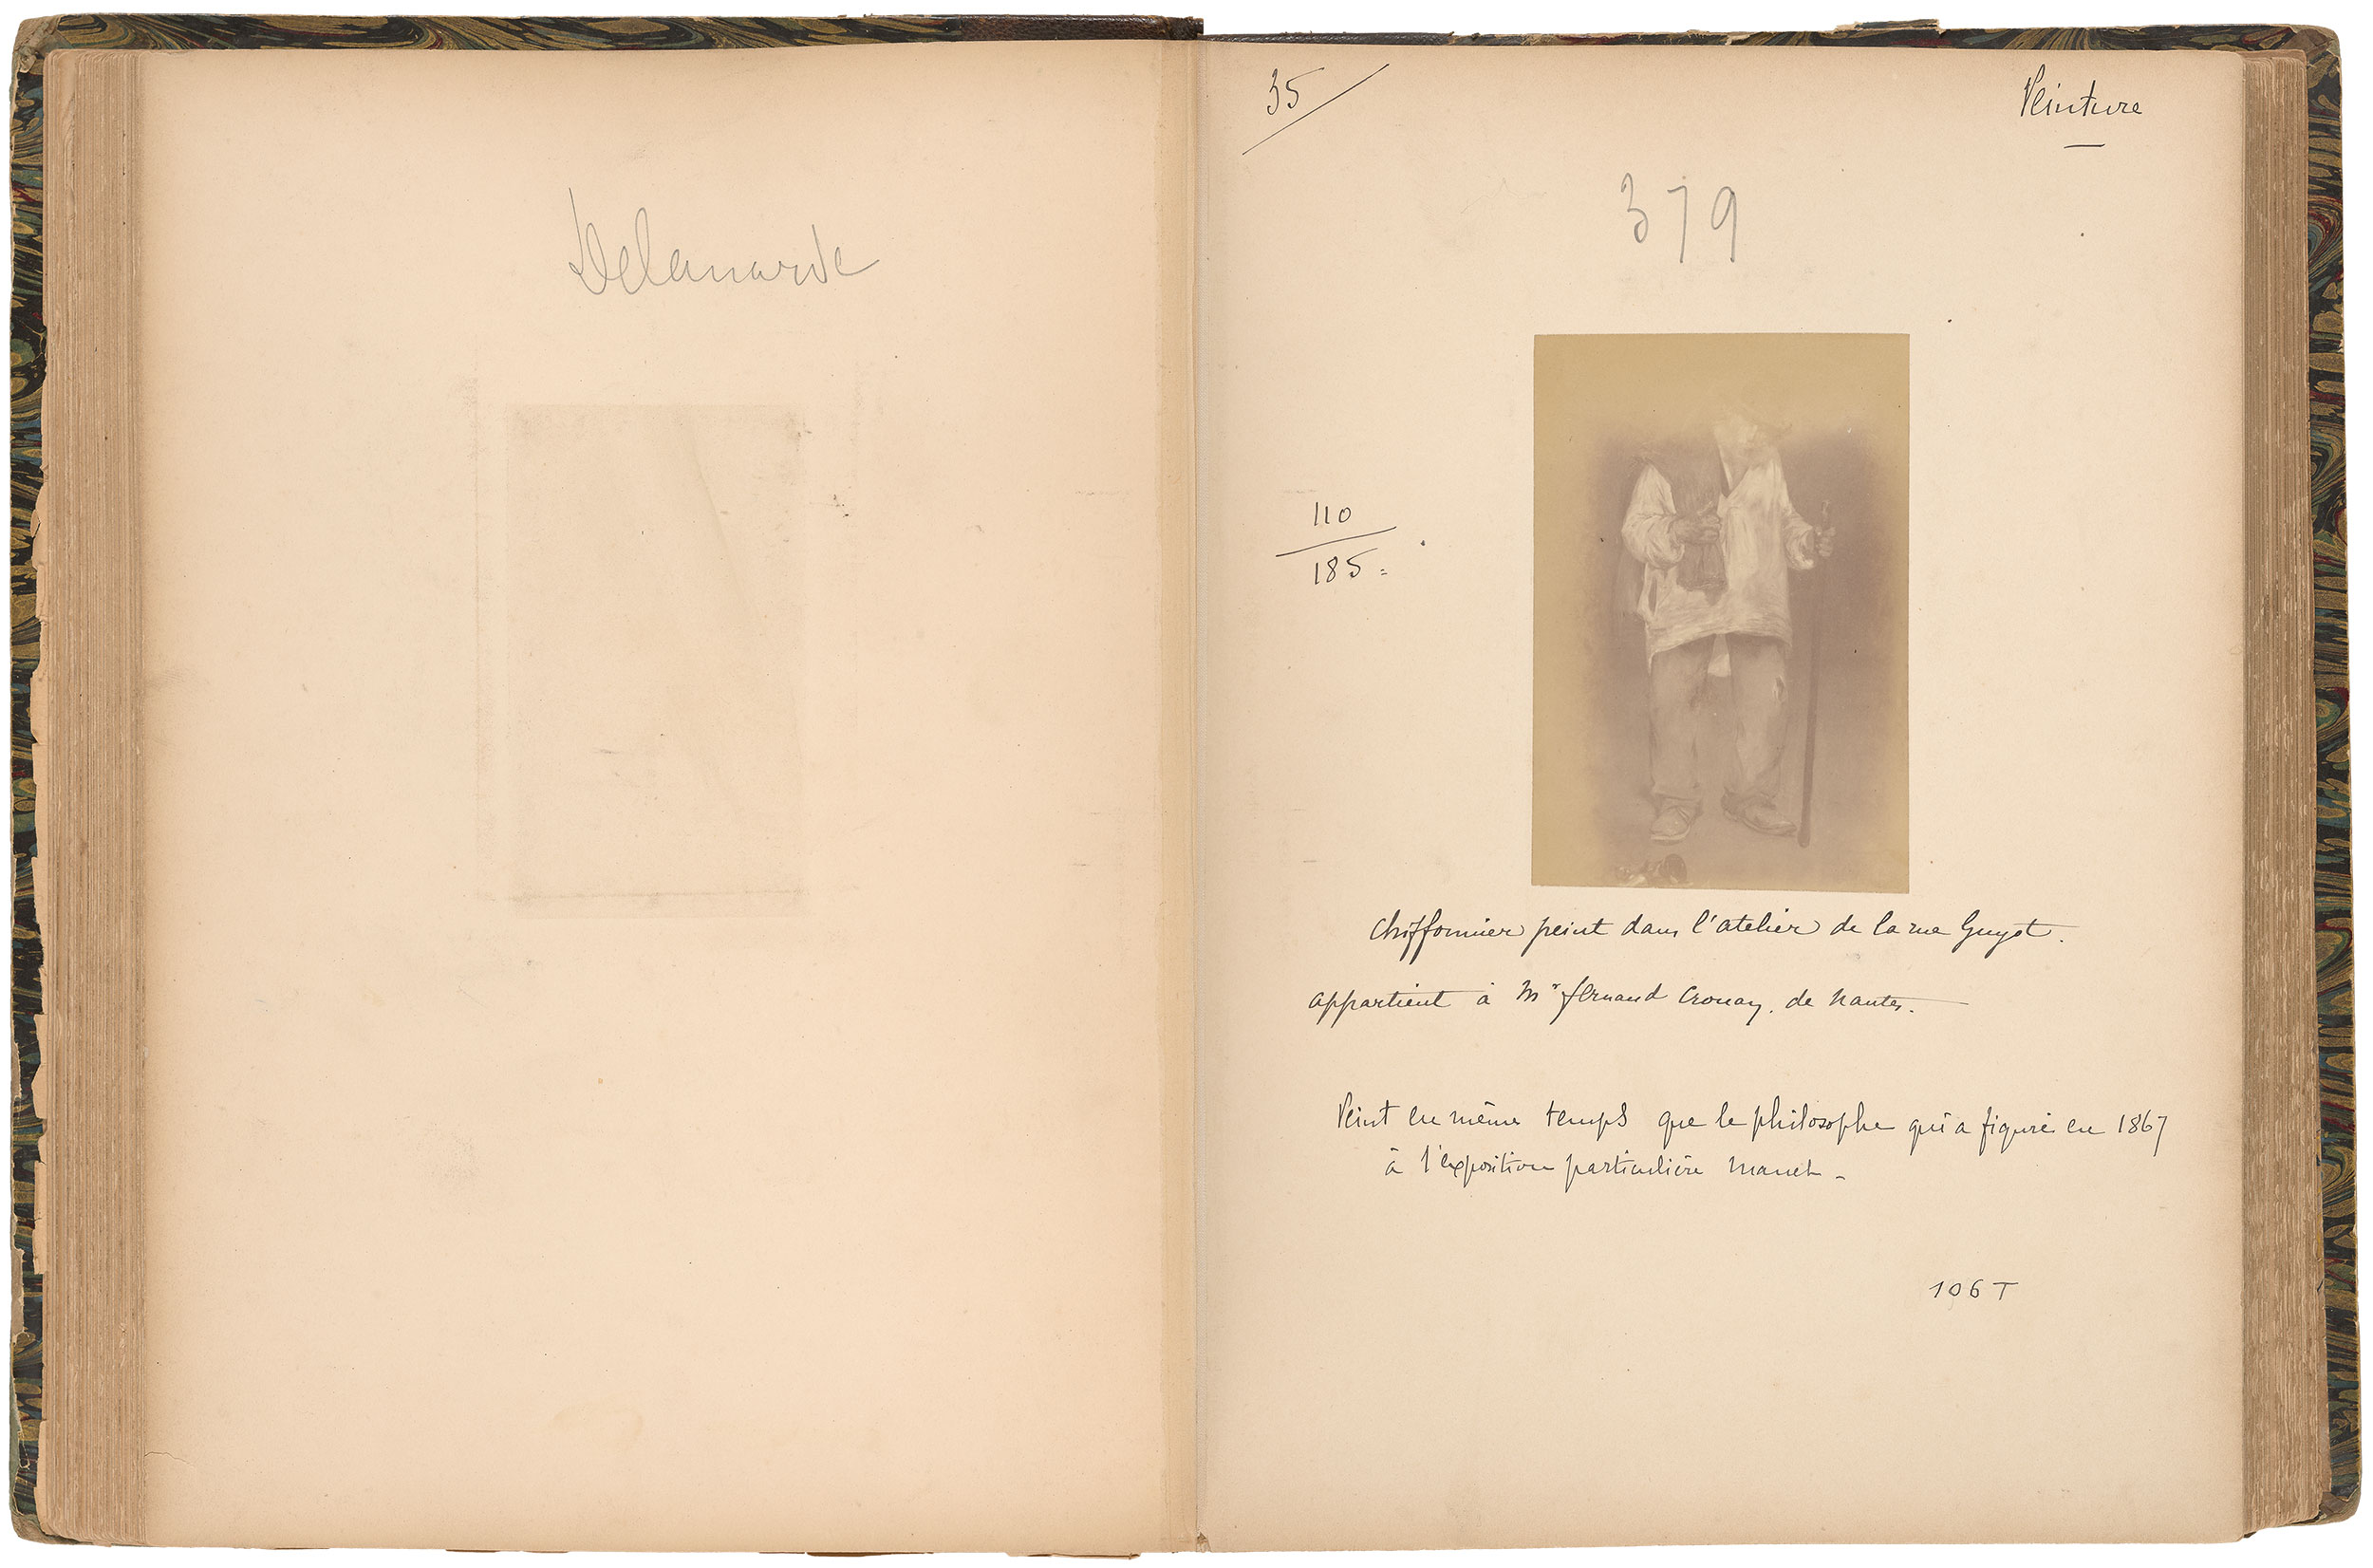 Delamarde
35
Peinture
379
110
185 =
Chiffonnier peint dans l'atelier de la rue Guyot.
appartient à Mr fernand Crouan. de Nantes.
Peint en même temps que le philosophe qui a figuré en 1867
à l'exposition particulière Manet -
106 T